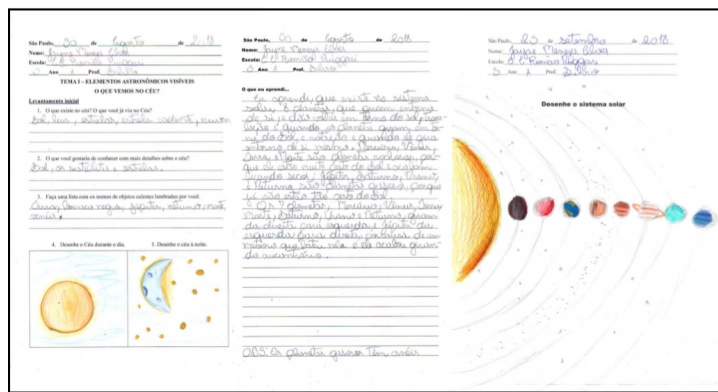 São Paulo, 30 de Agosto de 2018
Nome: Jayne Escola: E.E. Romeu
5 Ano A Prof.
TEMA I – ELEMENTOS ASTRONÔMICOS VISÍVEIS
O QUE VEMOS NO CÉU?
Levantamento inicial
1. O que existe no céu? O que você já viu no Céu?
Sol, lua, estrelas, estrela cadente, nuvem
2. O que você gostaria de conhecer com mais detalhes sobre o céu?
Sol, os satélites e estrelas.
3. Faça uma lista com os nomes de objetos celestes lembrados por você.
Terra, buraco negro, júpiter, saturno, marte,
4. Desenhe o Céu durante o dia.
5. Desenhe o céu à noite.
São Paulo, de Agosto de 2018
Nome: Jayne
Escola: E.E. Romeu
5 Ano A Prof.
O que eu aprendi...
Eu aprendi, que existe no sistema
solar 8 planetas, que giram entorno
de si, e eles em torno do sol,
é quando, os planetas giram em
do Sol, e rotação é quando ele gira
entorno de si mesmo. Mercúrio, Vênus,
Terra e Marte são planetas rochosos, por-
que eles são mais perto do Sol e acabam
ficando secos, Júpiter, Saturno, Urano,
e Netuno são planetas gasosos, porque
não estão tão perto do Sol.
Os planetas, Mercúrio, Vênus, Terra
Marte, Saturno, Urano e Netuno, giram
da direita para esquerda e júpiter da
esquerda para direita, por causa de um
que bateu nele e ele acabou girando
OBS: Os planetas gasosos têm anéis
São Paulo, 25 de setembro de 2018.
Nome: Jayne
Escola: E.E. Romeu
5 Ano A Prof.
Desenhe o sistema solar